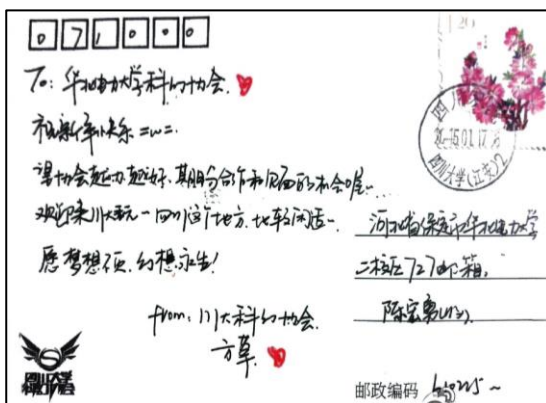 071000
To: 华北电力大学科幻协会.
祝新年快乐=w=.
望协会越办越好,期盼合作和见面的机会喔~
欢迎来川大玩~四川这个地方,比较闲适~
愿梦想不死,幻想永生!
from: 川大科幻协会.
方草.
20
四川
15.01.17
四川大学(江安)2
河北省保定市华北电力大学
二校区727邮箱,
陈宏勇(收).
邮政编码